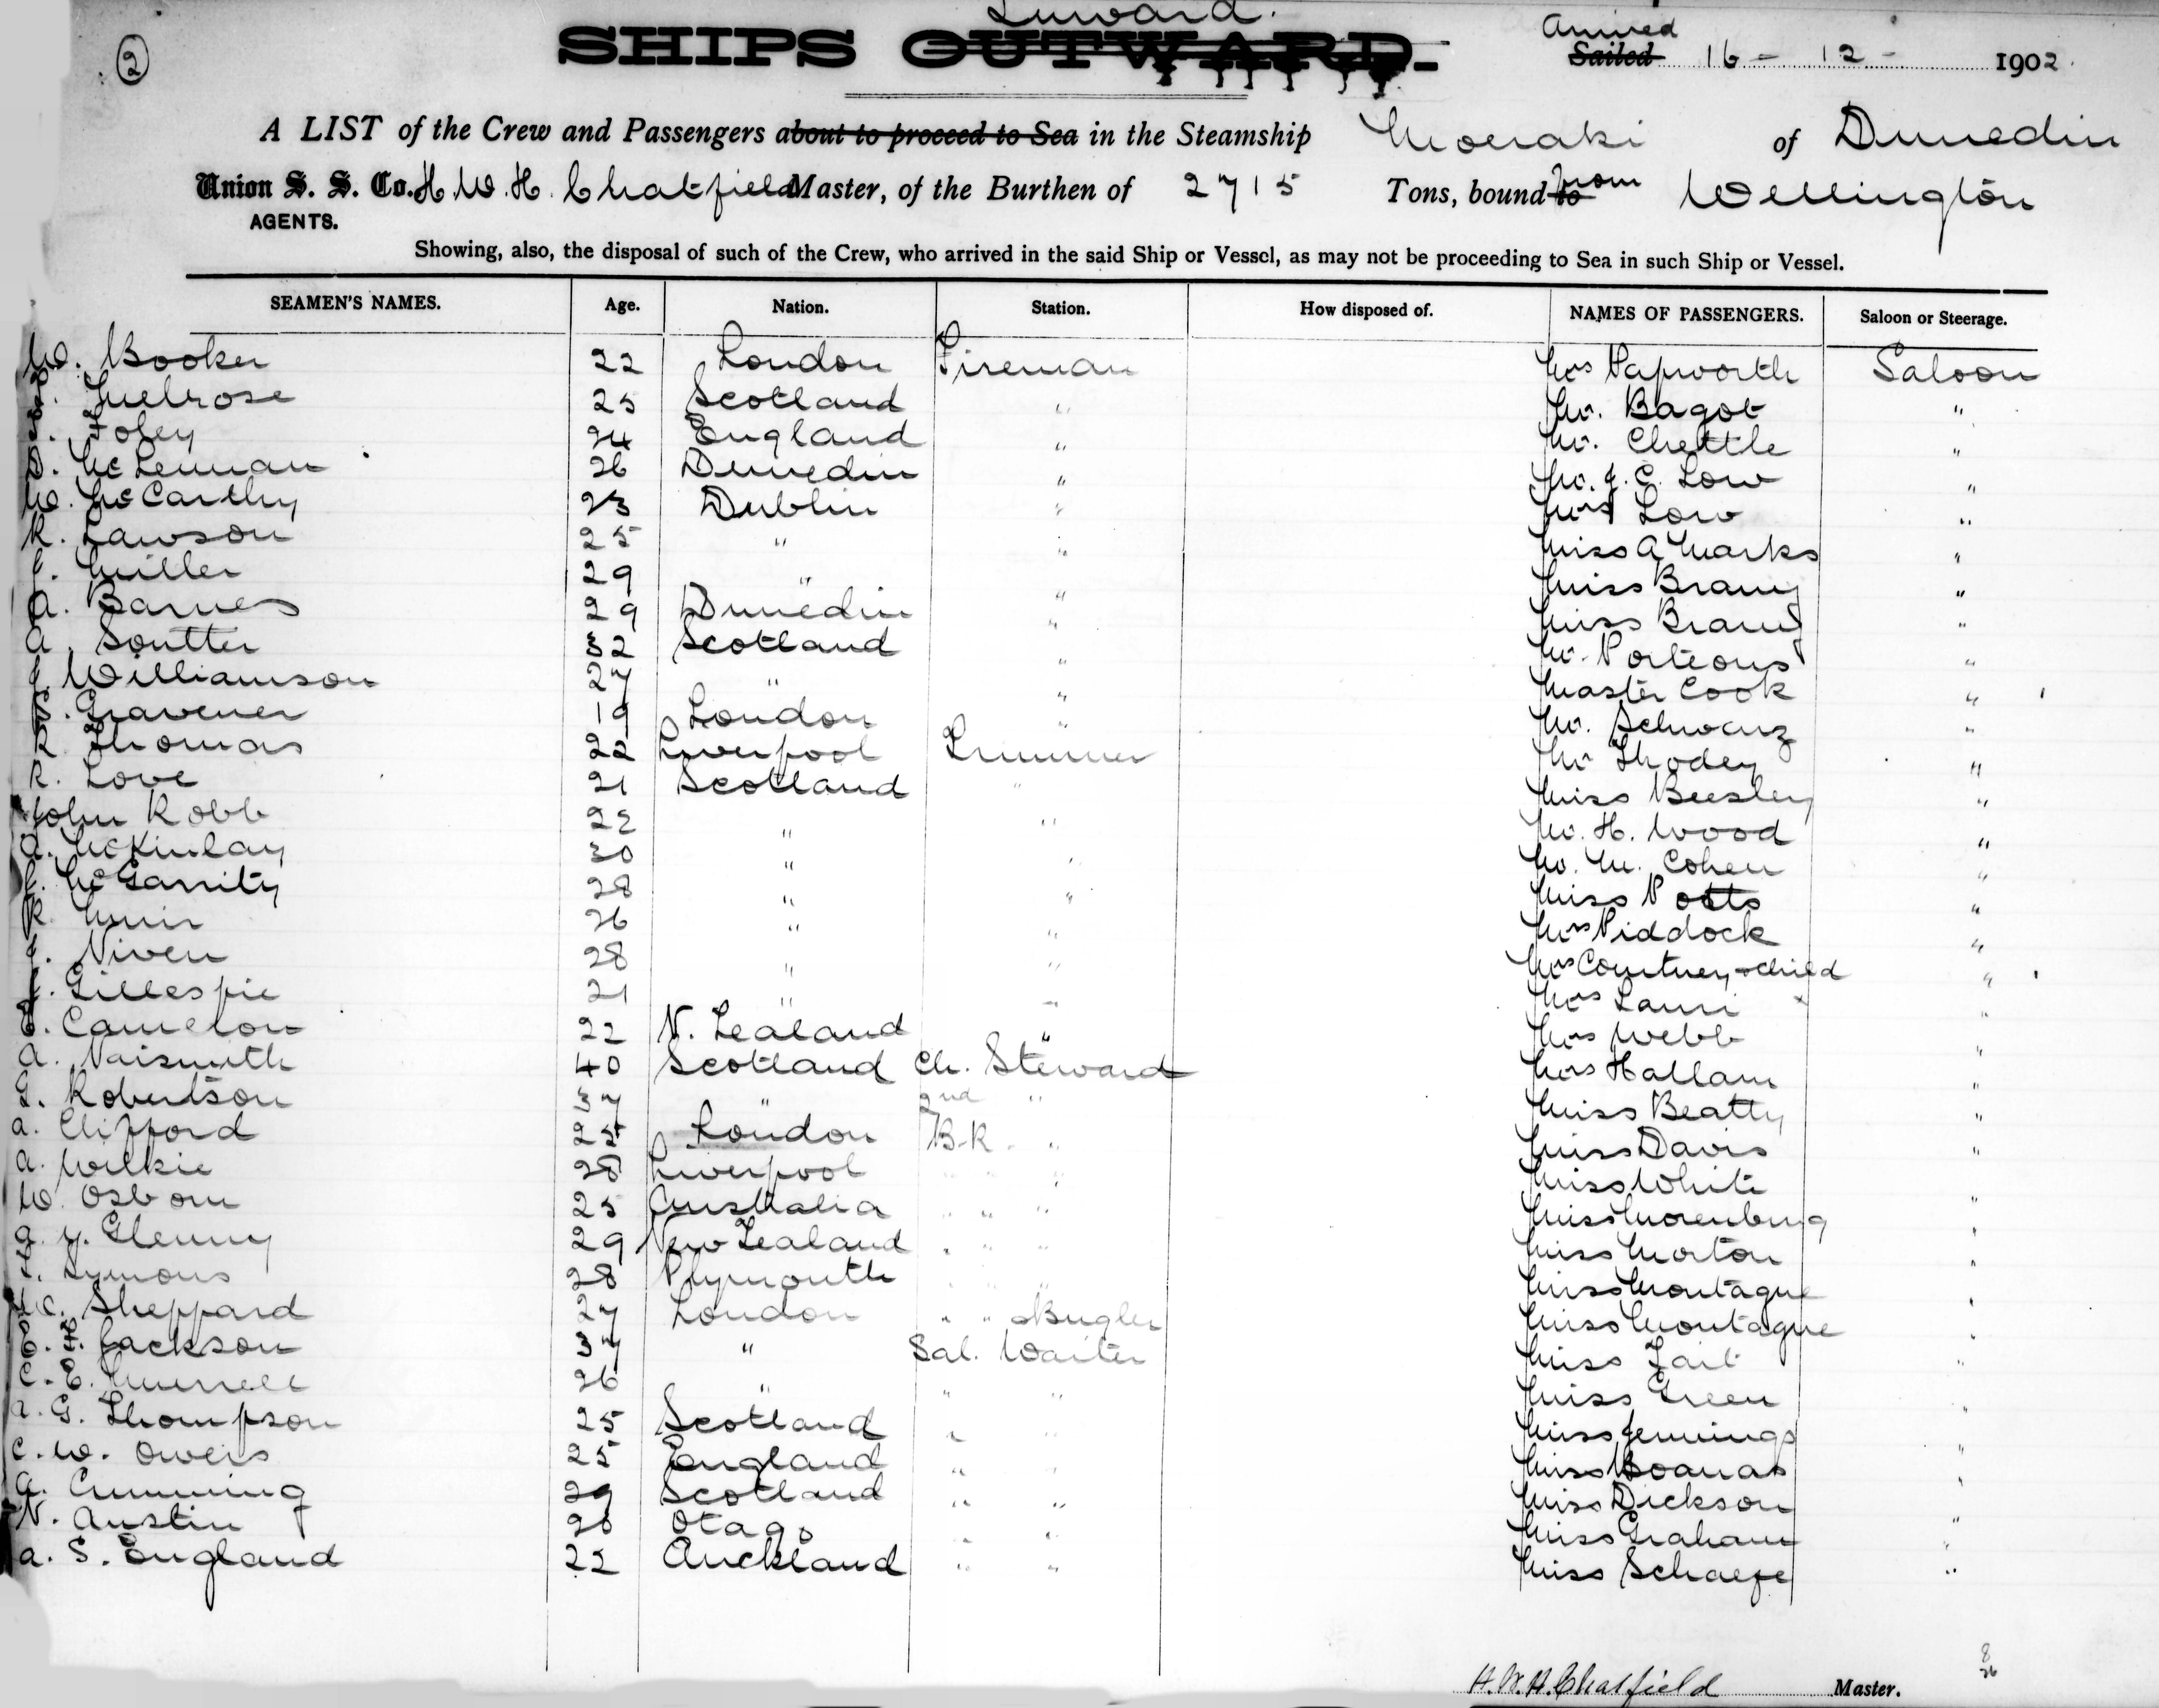 2
Inward.
SHIPS OUTWARD.
Arrived
Sailed 16 - 12 - 1902.
A LIST of the Crew and Passengers about to proceed to Sea in the Steamship Moeraki of Dunedin
Union S. S. Co. H. W. H. Chatfield Master, of the Burthen of 2715 Tons, bound to from Wellington
AGENTS.
Showing, also, the disposal of such of the Crew, who arrived in the said Ship or Vessel, as may not be proceeding to Sea in such Ship or Vessel.
SEAMEN'S NAMES. Age. Nation. Station. How disposed of. NAMES OF PASSENGERS. Saloon or Steerage.
W. Booker 22 London Fireman Mrs Papworth Saloon
Melrose 25 Scotland " Mr. Bagot "
Foley 24 England " Mr. Chettle "
D. McLennan 26 Dunedin " Mr. J. C. Low "
W. McCarthy 23 Dublin " Mrs Low "
R. Lawson 25 " " Miss A Marks "
J. Miller 29 " " Miss "
A. Barnes 29 Dunedin " Miss "
A. Soutter 32 Scotland " Mr. Porteous "
J. Williamson 27 " " Master Cook "
Gravener 19 London " Mr. Schwarz "
R. Thomas 22 Liverpool Trimmer Mr Thodey "
R. Love 21 Scotland " Miss Beesley "
John Robb 22 " " Mr. H. Wood "
A. McKinlay 30 " " Mr. M. Cohen "
J. McGarrity 28 " " Miss Potts "
R. Muir 26 " " Mrs Piddock "
J. Niven 28 " " Mrs Courtney + child "
J. Gillespie 21 " " Mrs "
Cameron 22 N. Zealand " Mrs Webb "
A. Naismith 40 Scotland Ch. Steward Mrs Hallam "
G. Robertson 37 " 2nd " Miss Beatty "
A. Clifford 25 London B.R. " Miss Davis "
A. Wilkie 28 Liverpool " " Miss White "
W. Osborn 25 Australia " " Miss Morenburg "
A. Y. Glenny 29 New Zealand " " Miss Morton "
Symons 28 Plymouth " " Miss Montague "
Sheppard 27 London " " Bugler Miss Montague "
E. H. Jackson 37 " Sal. Waiter Miss Tait "
C. E. Murrell 26 " " " Miss Green "
A. G. Thompson 25 Scotland " " Miss Jennings "
C. W. Owers 25 England " " Miss Boanas "
A. Cumming 29 Scotland " " Miss Dickson "
N. Austin 20 Otago " " Miss Graham "
A. S. England 22 Auckland " " Miss Schaefe "
H. W. H. Chatfield Master.
8
26